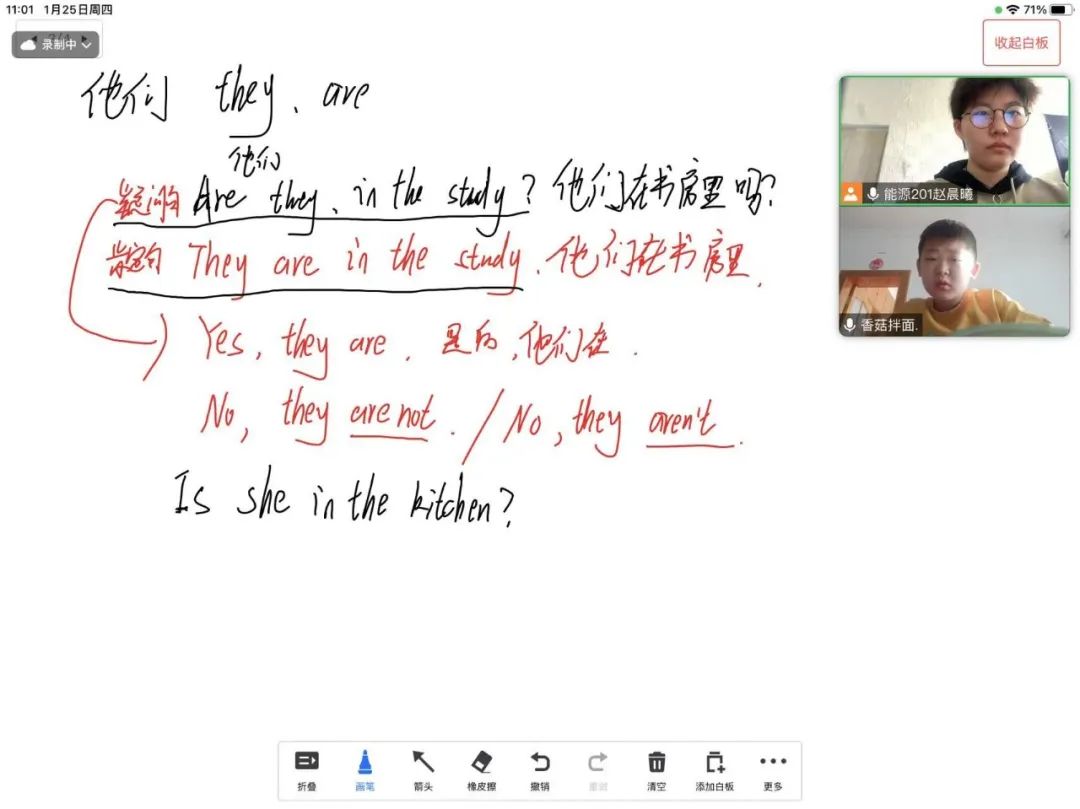 11:01 1月25日周四 71%
录制中
收起白板
他们 they、are
他们
疑问句 Are they、in the study? 他们在书房里吗?
肯定句 They are in the study、他们在书房里.
Yes, they are. 是的,他们在.
No, they are not. / No, they aren't.
Is she in the kitchen?
能源201赵晨曦
香菇拌面.
折叠 画笔 箭头 橡皮擦 撤销 重做 清空 添加白板 更多